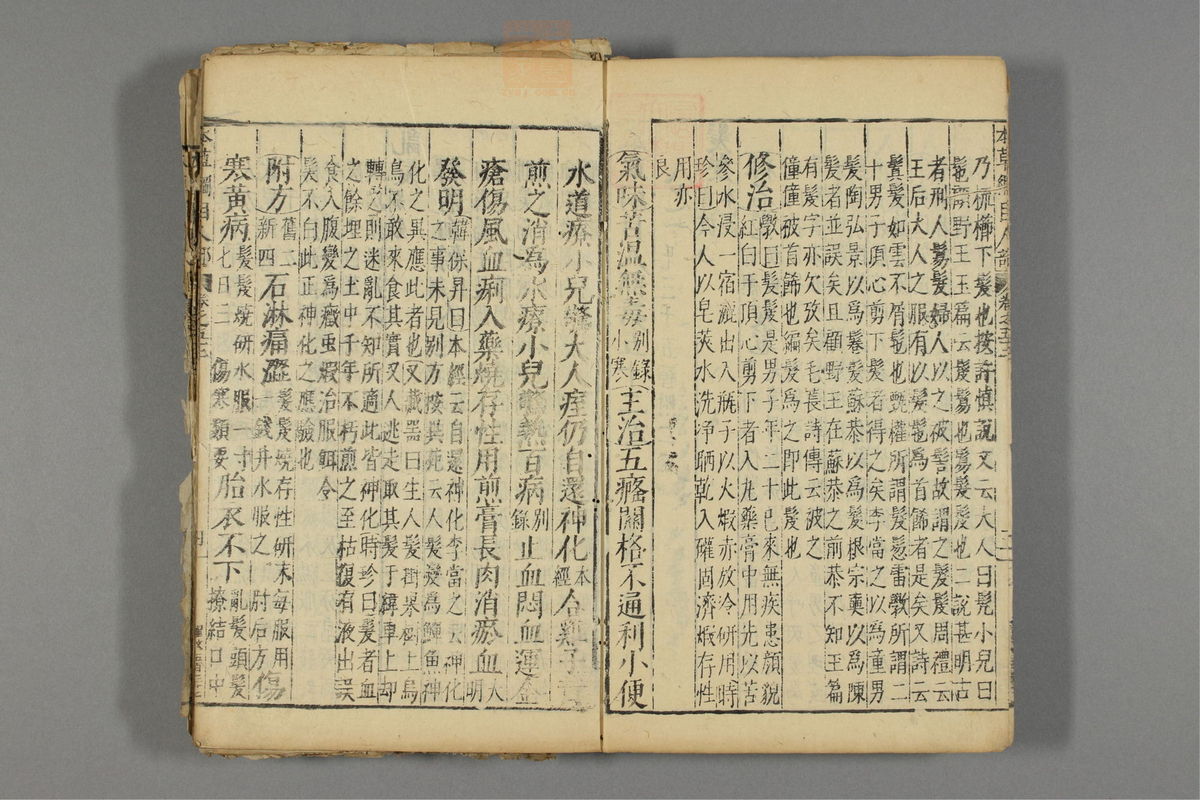 本草綱目人部 卷之五十二
乃梳櫛下髮也按許慎說文云大人曰髡小兒曰
髢顧野王玉篇云髲鬄也鬄髲也二說甚明古
者刑人鬄髮婦人以之被髻故謂之髲髢周禮云
王后夫人之服有以髮髢爲首飾者是矣又詩云
鬒髮如雲不屑髢也甄權所謂髮髲雷斆所謂二
十男子頂心剪下髮者得之矣李當之以爲童男
髮陶弘景以爲鬈髮蘇恭以爲髮根宗奭以爲陳
髮者並誤矣且顧野王在蘇恭之前恭不知王篇
有髲字亦欠攷矣毛萇詩傳云被之
僮僮被首飾也編髮爲之即此髲也
修治 斆曰髮髲是男子年二十已來無疾患顏貌
紅白于頂心剪下者入丸藥膏中用先以苦
參水浸一宿漉出入瓶子以火煆赤放冷研用時
珍曰今人以皂莢水洗淨晒乾入礶固濟煅存性
用亦
良
氣味苦溫無毒 別錄小寒 主治五癃關格不通利小便
水道療小兒驚大人痓仍自還神化 本經 合雞子黃
煎之消爲水療小兒驚熱百病 別錄 止血悶血運金
瘡傷風血痢入藥燒存性用煎膏長肉消瘀血 大明
發明 韓保昇曰本經云自還神化李當之云神化
之事未見別方按異苑云人髮變爲鱓魚神
化之異應此者也又藏器曰生人髮挂果樹上烏
鳥不敢來食其實又人逃走取其髮于緯車上却
轉之則迷亂不知所適此皆神化時珍曰髮者血
之餘埋之土中千年不朽煎之至枯復有液出誤
食入腹變爲癥虫煆治服餌令
髮不白此正神化之應驗也
附方 舊二新四 石淋痛澀 髮髲燒存性研末每服用
一錢井水服之 肘后方 傷
寒黃病 髮髲燒研水服一寸七日三 傷寒類要 胎衣不下 亂髮頭髮
撩結口中